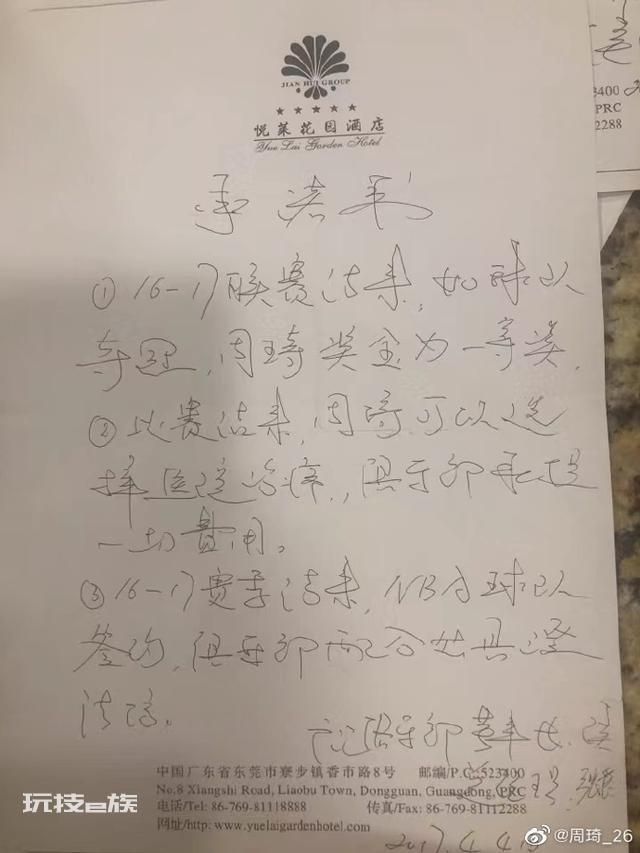 JIAN HUI GROUP
★★★★★
悦莱花园酒店
Yue Lai Garden Hotel
承诺书
① 16-17联赛结束，如球队
夺冠，周琦奖金为一等奖，
② 比赛结束，周琦可以选
择医院治疗，俱乐部承担
一切费用。
③ 16-17赛季结束，NBA球队
签约，俱乐部配合出具澄
清信。
俱乐部董事长
中国广东省东莞市寮步镇香市路8号 邮编/P.C:523400
No.8 Xiangshi Road, Liaobu Town, Dongguan, Guangdong, PRC
电话/Tel: 86-769-81118888 传真/Fax: 86-769-81112288
网址/http: www.yuelaigardenhotel.com
2017.4.4
3400
PRC
2288
玩技e族
@周琦_26